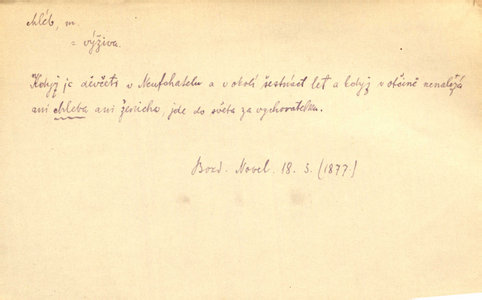 chléb, m.
= výživa.
Když je děvčeti v Neufchatelu a v okolí šestnáct let a když v otčině nenalezá
ani chleba ani ženicha, jde do světa za vychovatelku.
Bozd. Novel. 18. s. (1877)